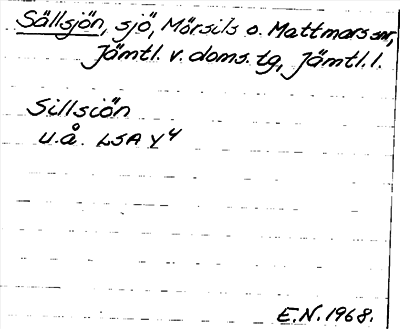 Sällsjön, sjö, Mörsils o. Mattmars snr,
Jämtl. v. doms. tg, Jämtl. l.
Sillsiön
u.å. LSA Y4
E.N. 1968.